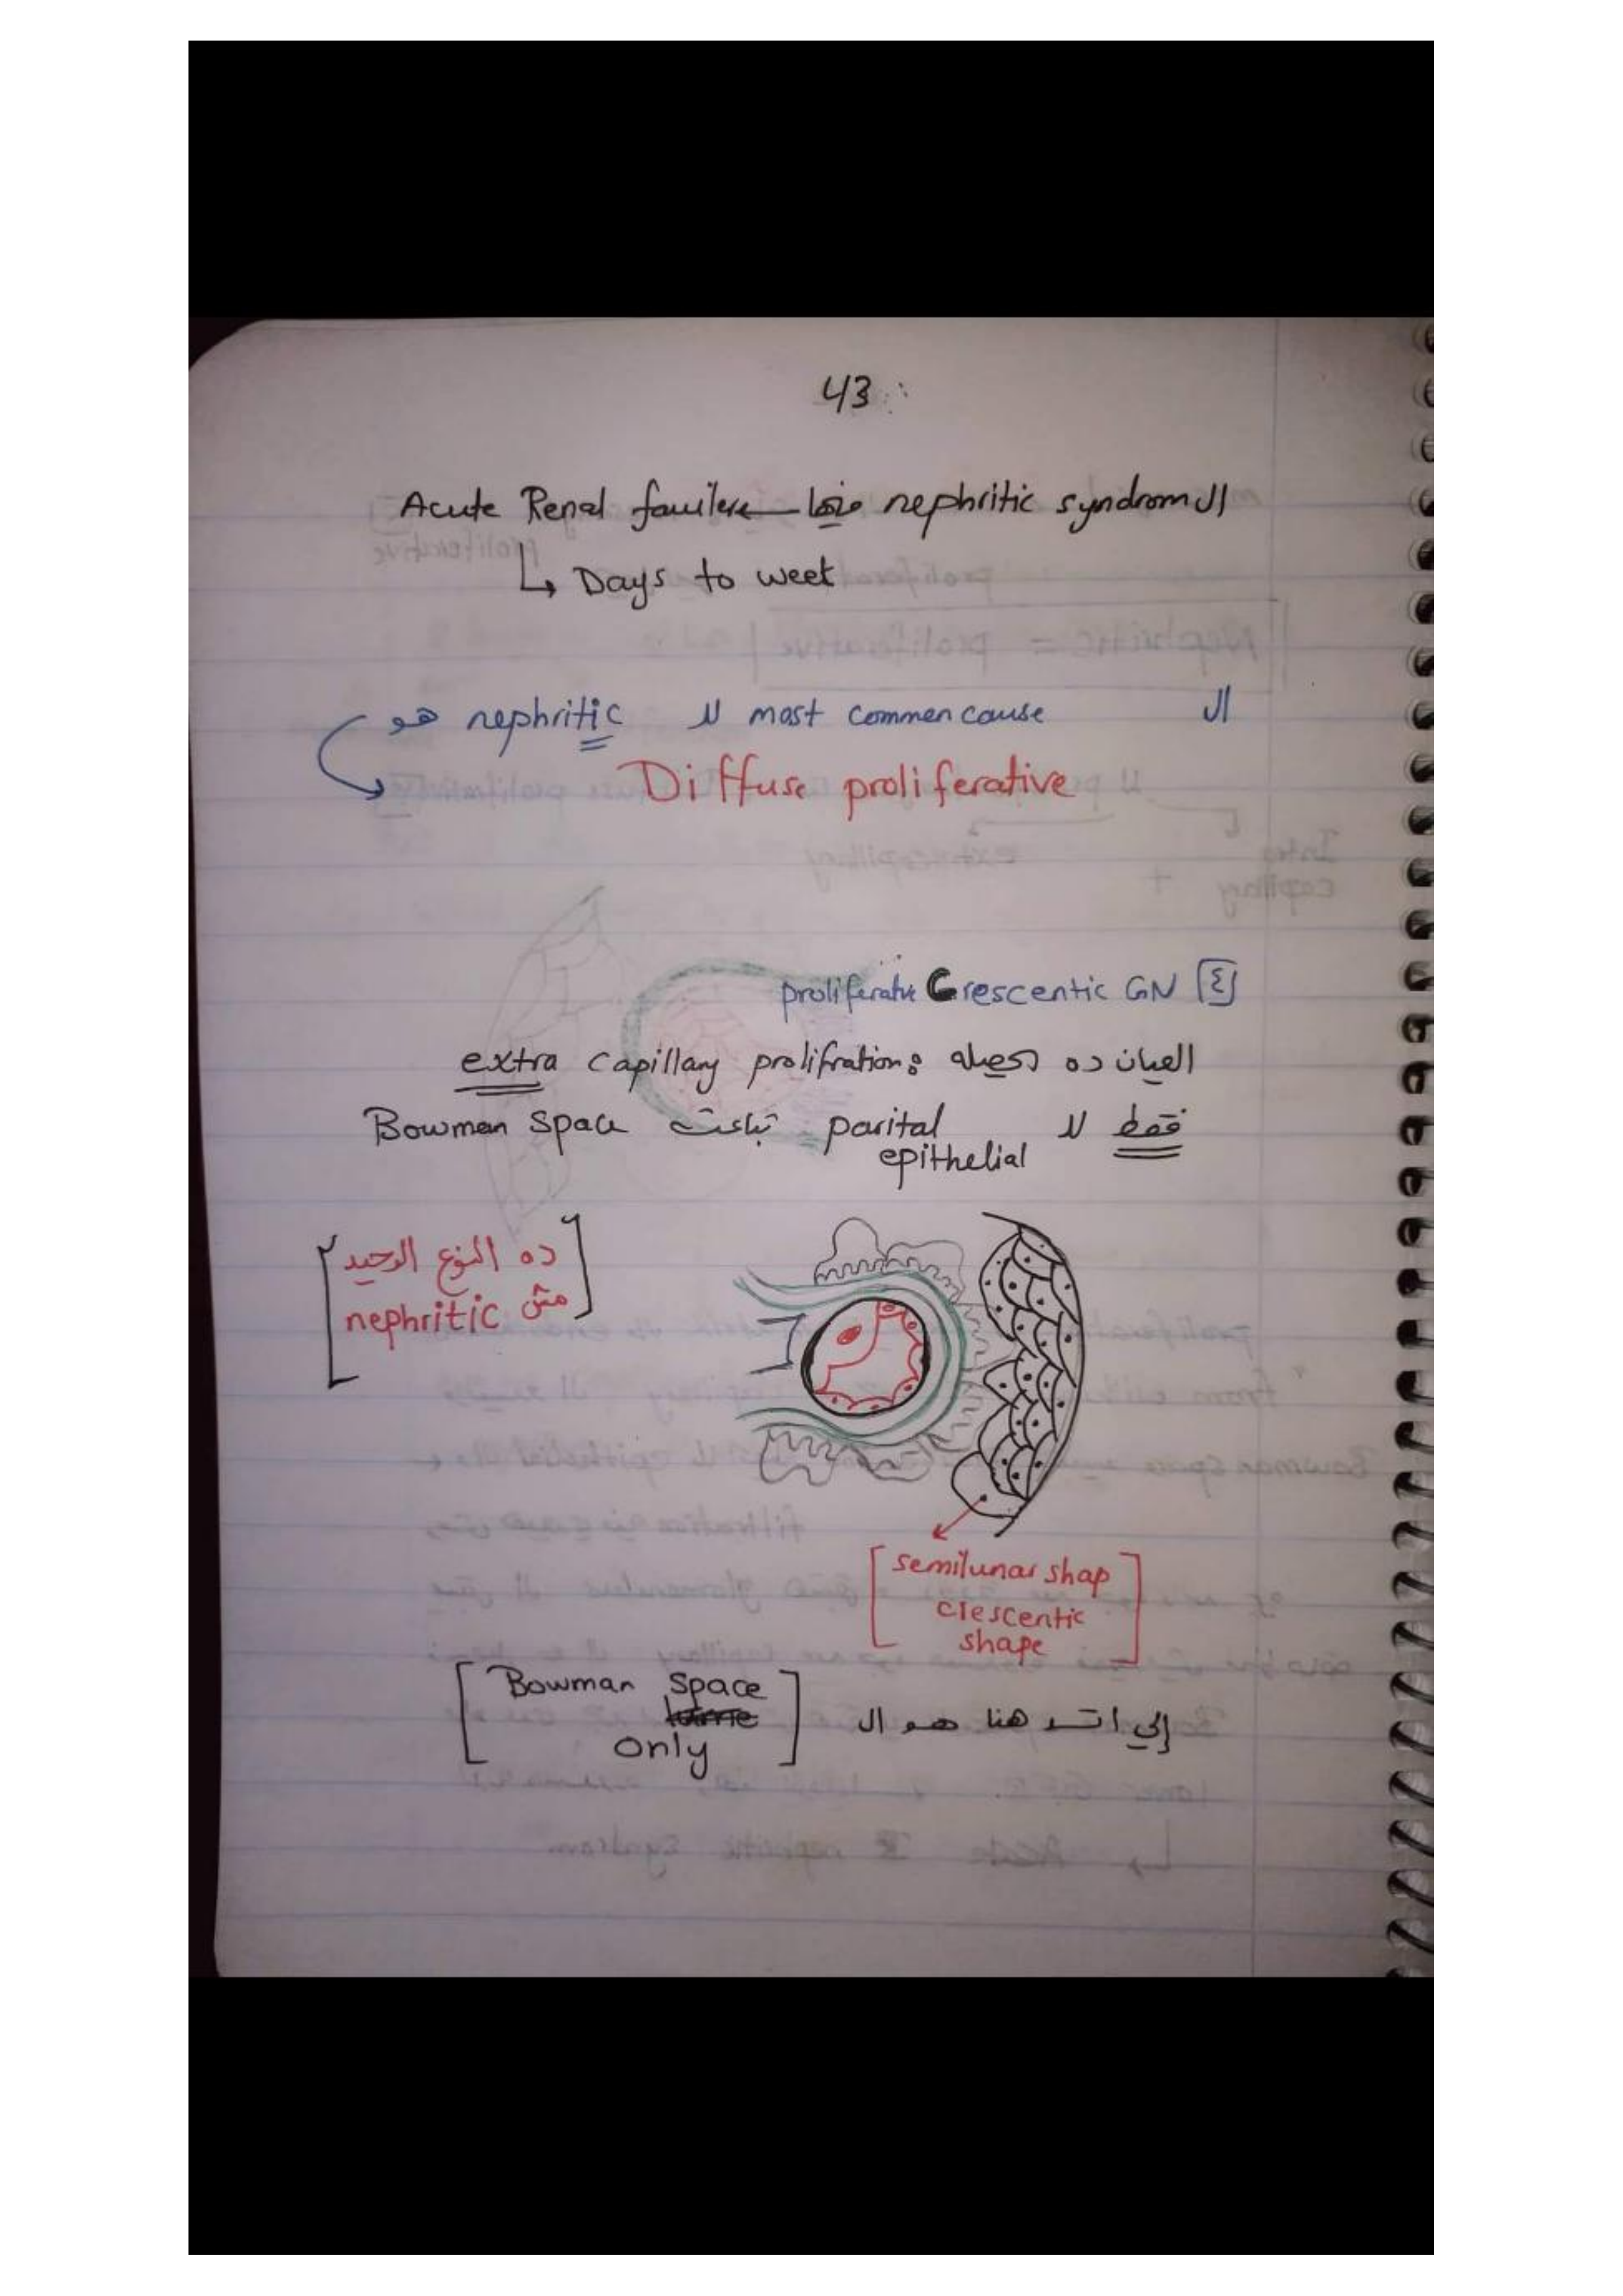 43
ال nephritic syndrom منها Acute Renal fauilere
Days to weet
ال most commen cause لل nephritic هو
Diffuse proliferative
٤ proliferative Crescentic GN
العيان ده بيحصله extra capillary prolifration:
فقط لل parital epithelial تباعت Bowman Space
ده النوع الوحيد
مش nephritic
semilunar shap
crescentic
shape
إلي اتسد هنا هو ال
Bowman Space
only